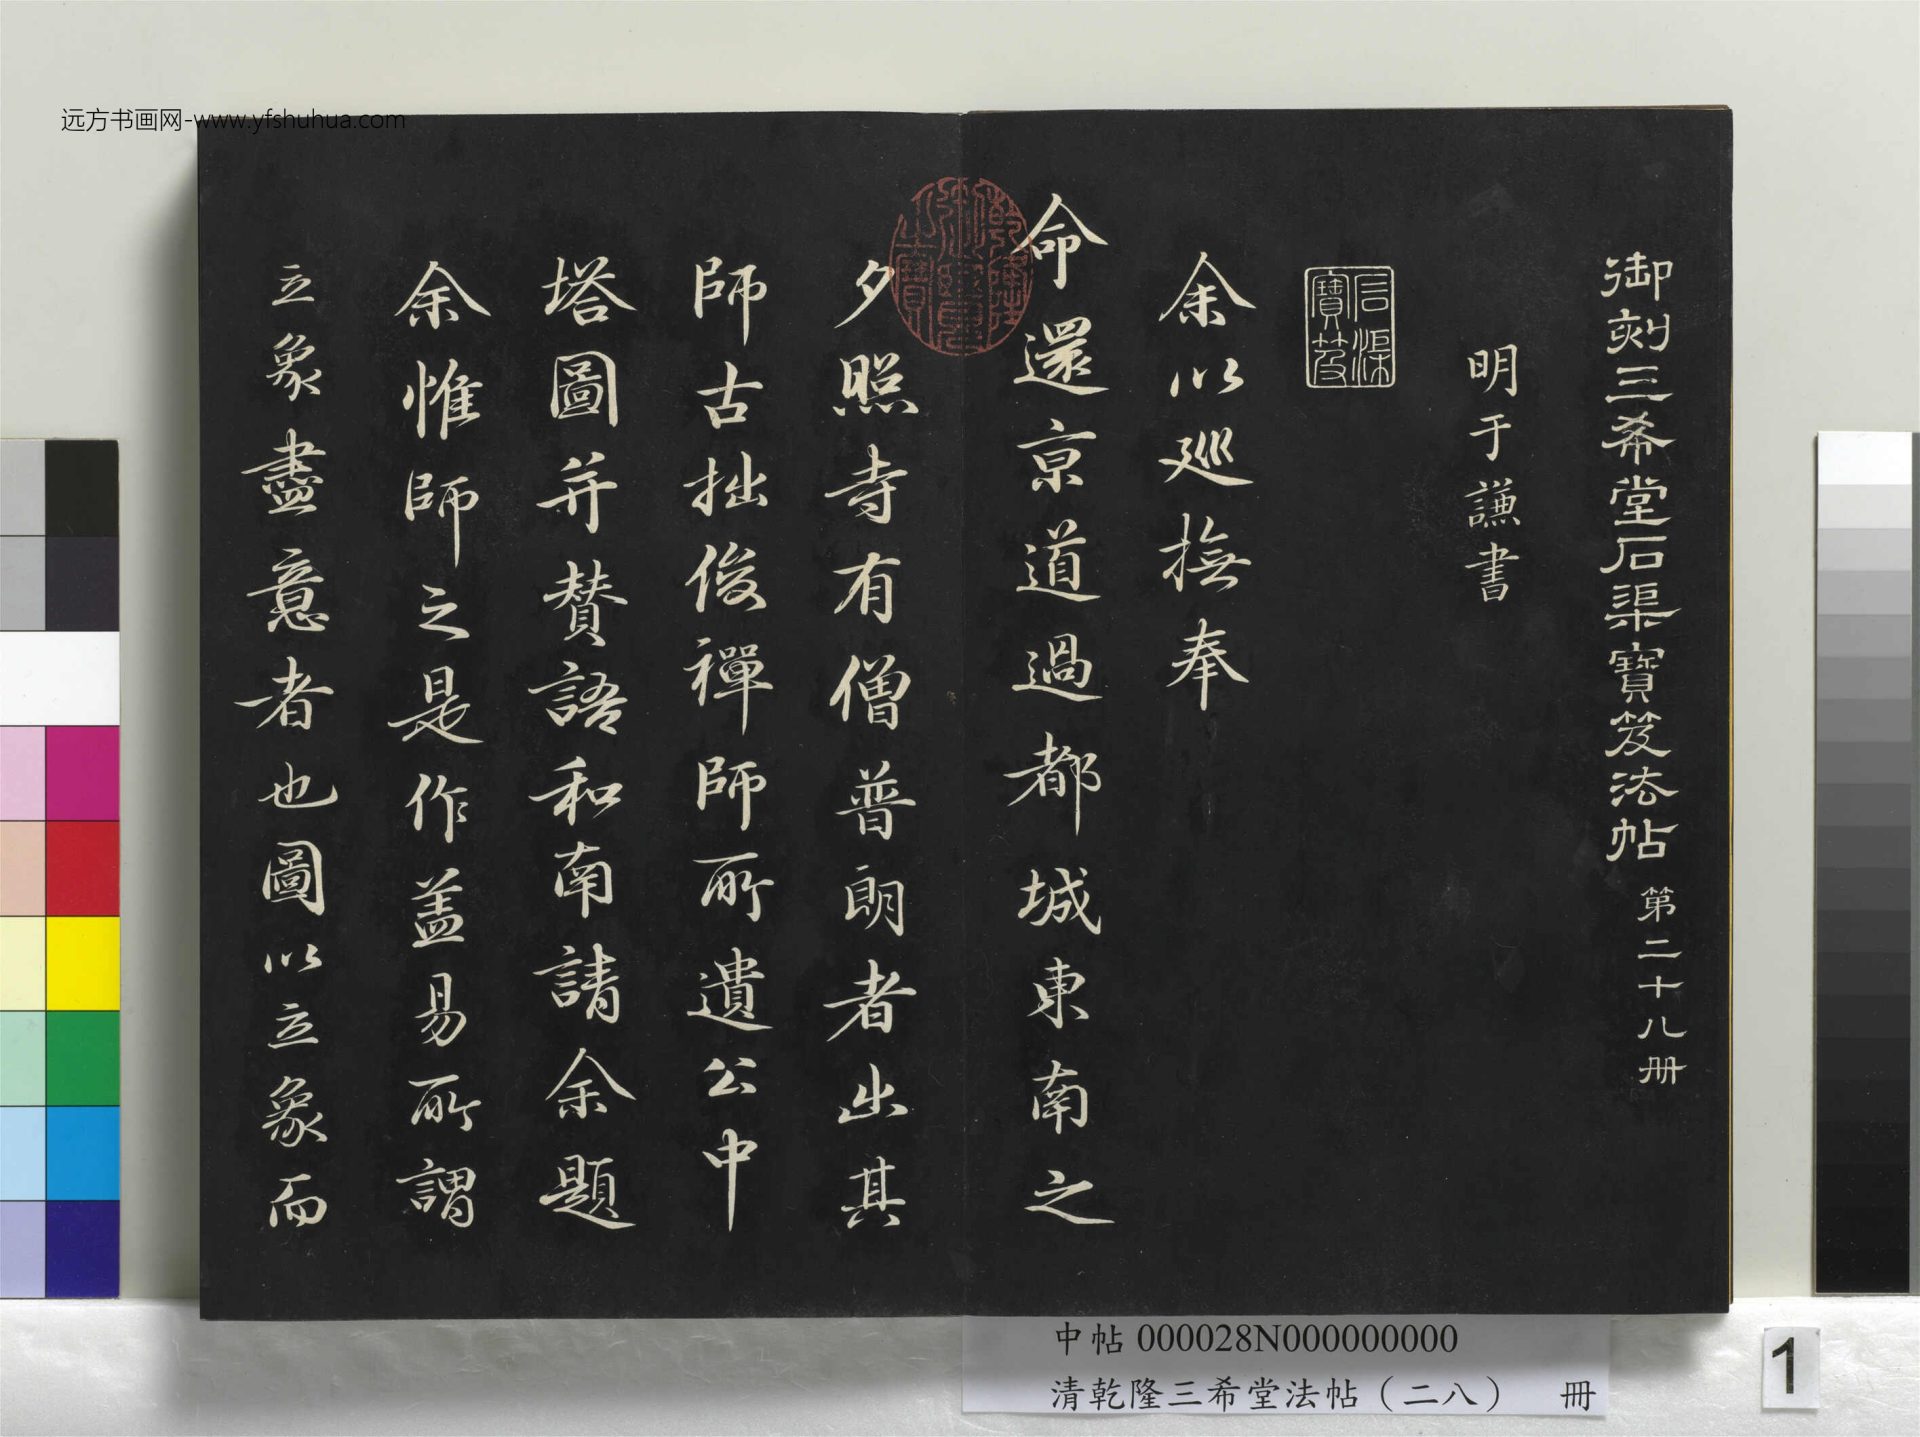 远方书画网-www.yfshuhua.com
御刻三希堂石渠寶笈法帖 第二十八册
明于謙書
石渠寶笈
余以廵撫奉
命還京道過都城東南之
夕照寺有僧普朗者出其
師古拙俊禪師所遺公中
塔圖并賛語和南請余題
余惟師之是作盖易所謂
立象盡意者也圖以立象而
乾隆御覽之寶
中帖 000028N000000000
清乾隆三希堂法帖（二八） 冊
1